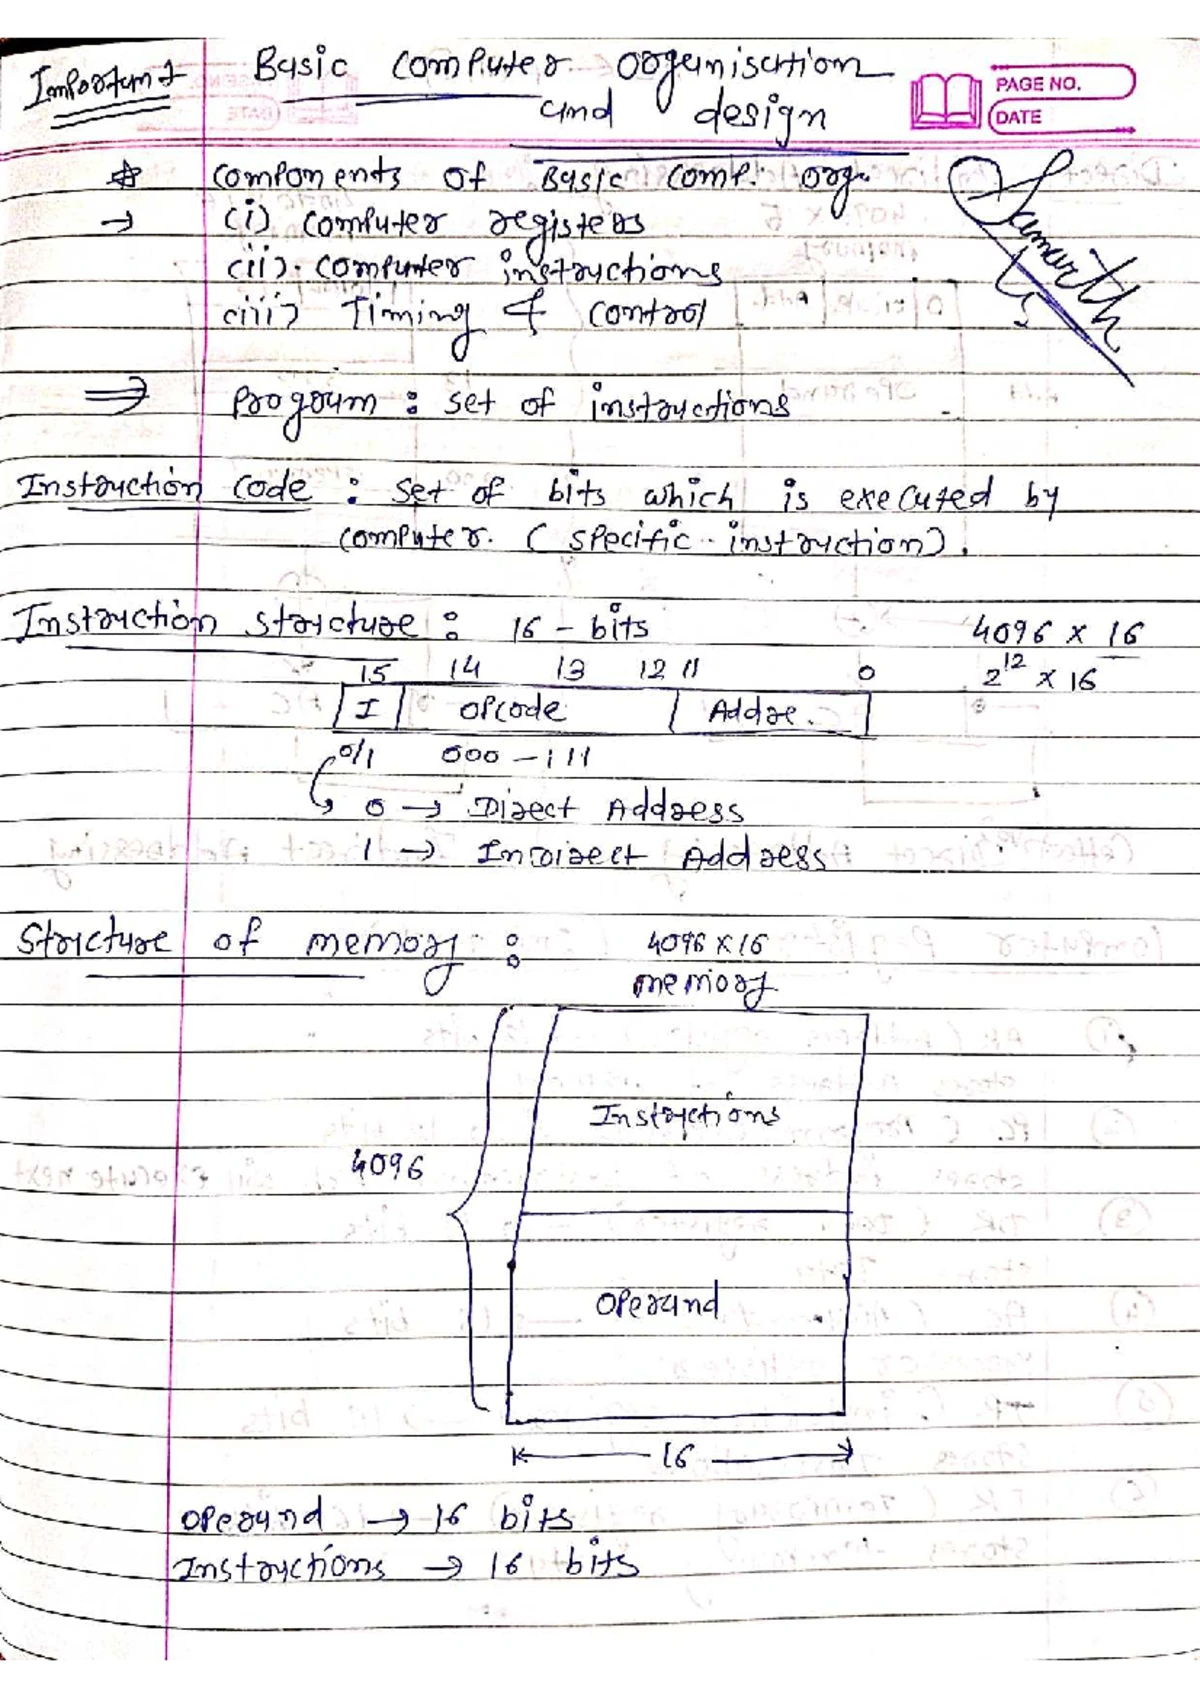 Important
Basic Computer organisation
and design
PAGE NO.
DATE
components of Basic comp. org.
→ (i) computer registers
(ii). computer instructions
(iii) Timing & control
⇒ program : set of instructions
Instruction code : set of bits which is executed by
computer. (specific instruction).
Instruction structure : 16 - bits
4096 x 16
15 14 13 12 11 0
2^12 x 16
I opcode Addre.
0/1 000 - 111
0 → Direct Address
1 → Indirect Address
Structure of memory :
4096 x 16
memory
Instructions
4096
operand
16
operand → 16 bits
Instructions → 16 bits
Samarth